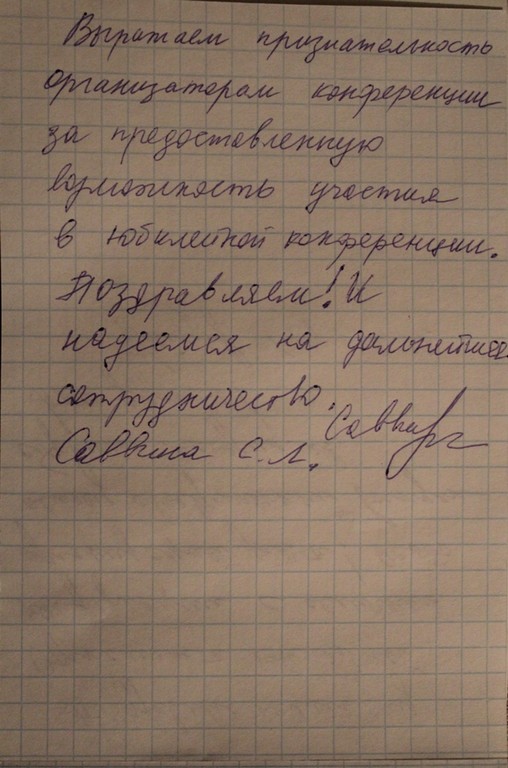 Выражаем признательность
организаторам конференции
за предоставленную
возможность участия
в юбилейной конференции.
Поздравляем! И
надеемся на дальнейшее
сотрудничество.
Саввина С.Л.